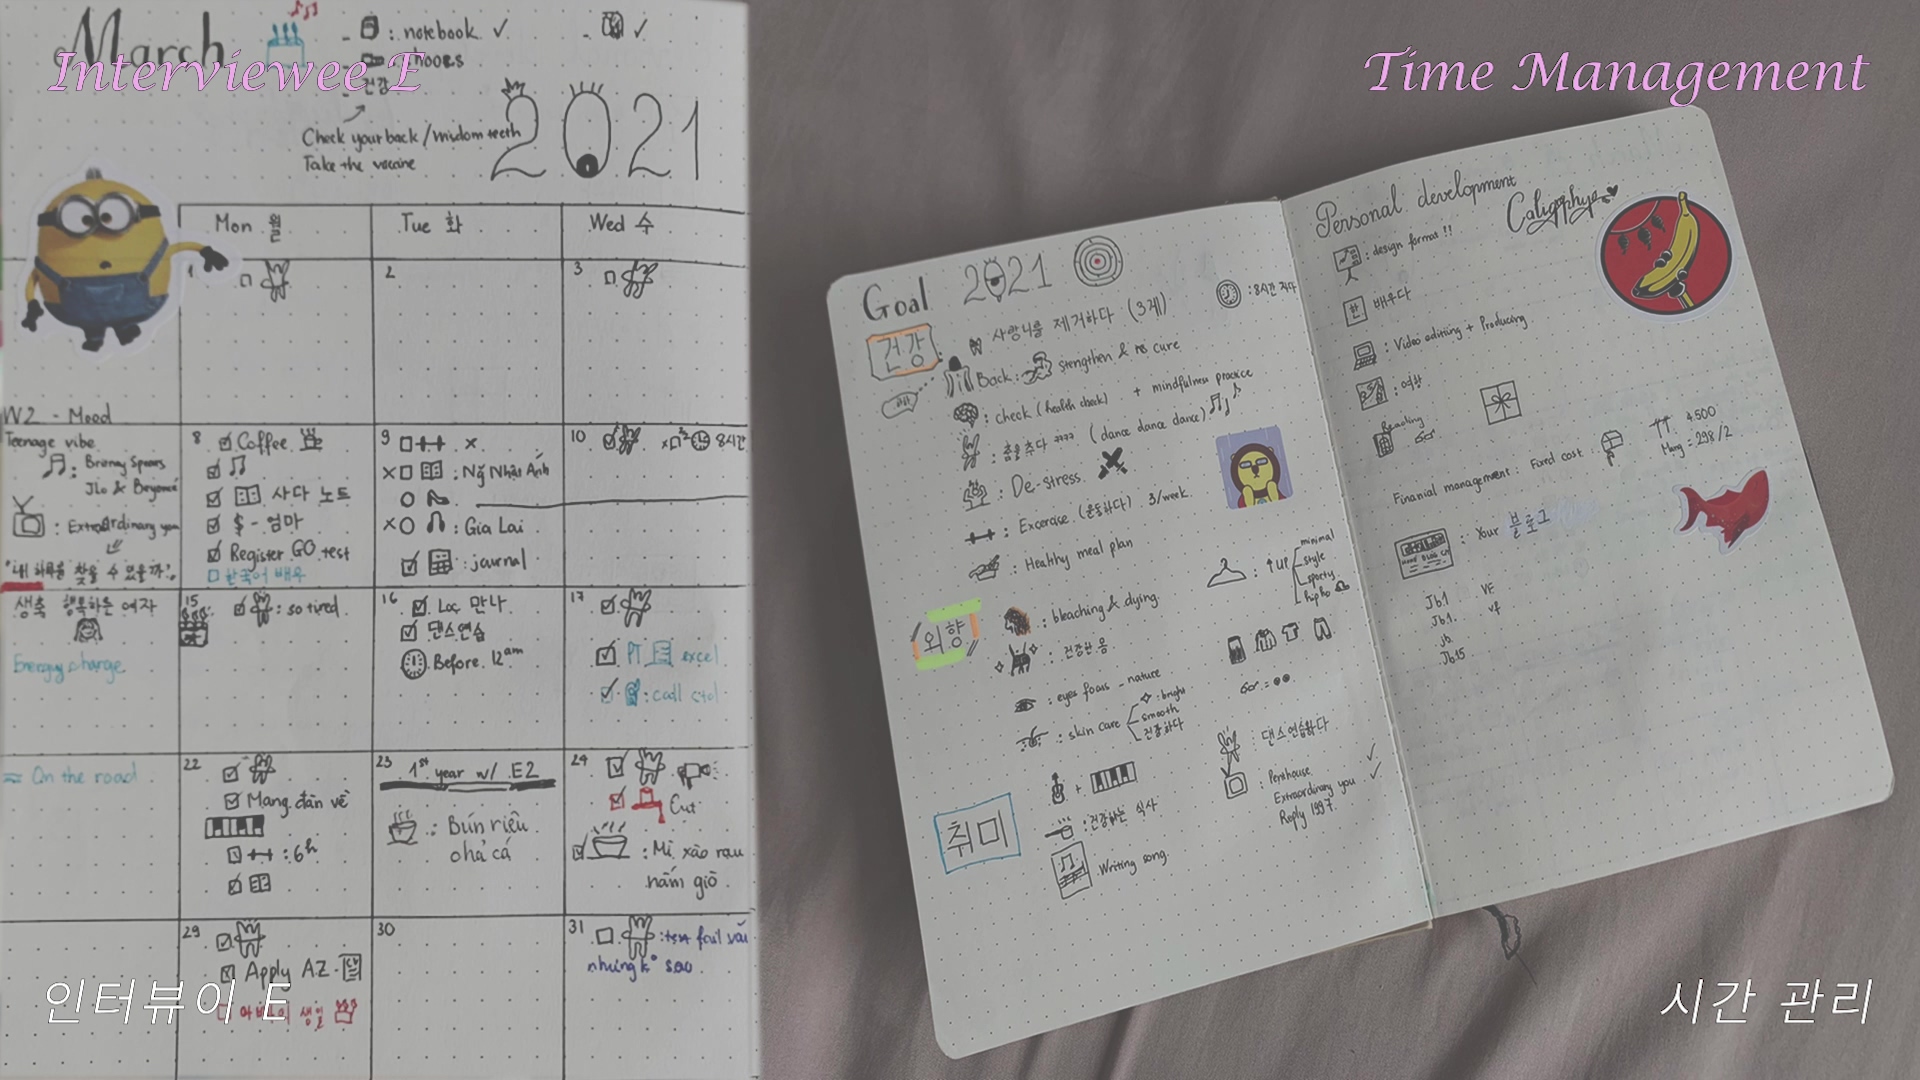 Interviewee E
Time Management
인터뷰이 E
시간 관리
March
: notebook ✓
✓
건강
Check your back / wisdom teeth
Take the vaccine
2021
Mon 월
Tue 화
Wed 수
1
2
3
W2 - Mood
Teenage vibe
: Britney Spears
Jlo & Beyoncé
: Extraordinary you
"내 하루를 찾을 수 있을까?"
8 Coffee
사다 노트
$ - 엄마
Register GO test
한국어 배우
9 x
x : Ng Nhật Ánh
x : Gia Lai
: journal
10 8시간
생축 행복하는 여자
Energy change
15 : so tired
16 Lộc 만나
댄스연습
Before 12am
17
PT excel
: call ctol
On the road
22
Mang đàn về
: 6h
23 1st year w/ E2
: Bún riêu
chả cá
24
Cut
: Mì xào rau
nấm giò
29
Apply AZ - CV
생일
30
31 : test fail rồi
nhưng k° sao
Goal 2021
건강
사랑니를 제거하다 (3개)
: 8시간 자다
Back : strengthen & cure
: check (health check) + mindfulness practice
: 춤을 추다 (dance dance dance)
: De-stress
: Excercise (운동하다) 3/week
: Healthy meal plan
외향
: bleaching & dying
: 건강한 몸
: eyes focus _ nature
: skin care
: bright
smooth
건강하다
: ↑ up
minimal
style
sporty
hiphop
취미
+
: 건강하는 식사
Writing song
: 댄스연습하다
: Penthouse
Extraordinary you
Reply 1997
Personal development
Caligaphye
: design format !!
한 배우다
: Video editing + Producing
: 여행
Reading
Finanial management : Fixed cost :
4.500
Mang = 298/2
: Your 블로그
Jb1 VF
Jb1. vf
Jb
Jb15